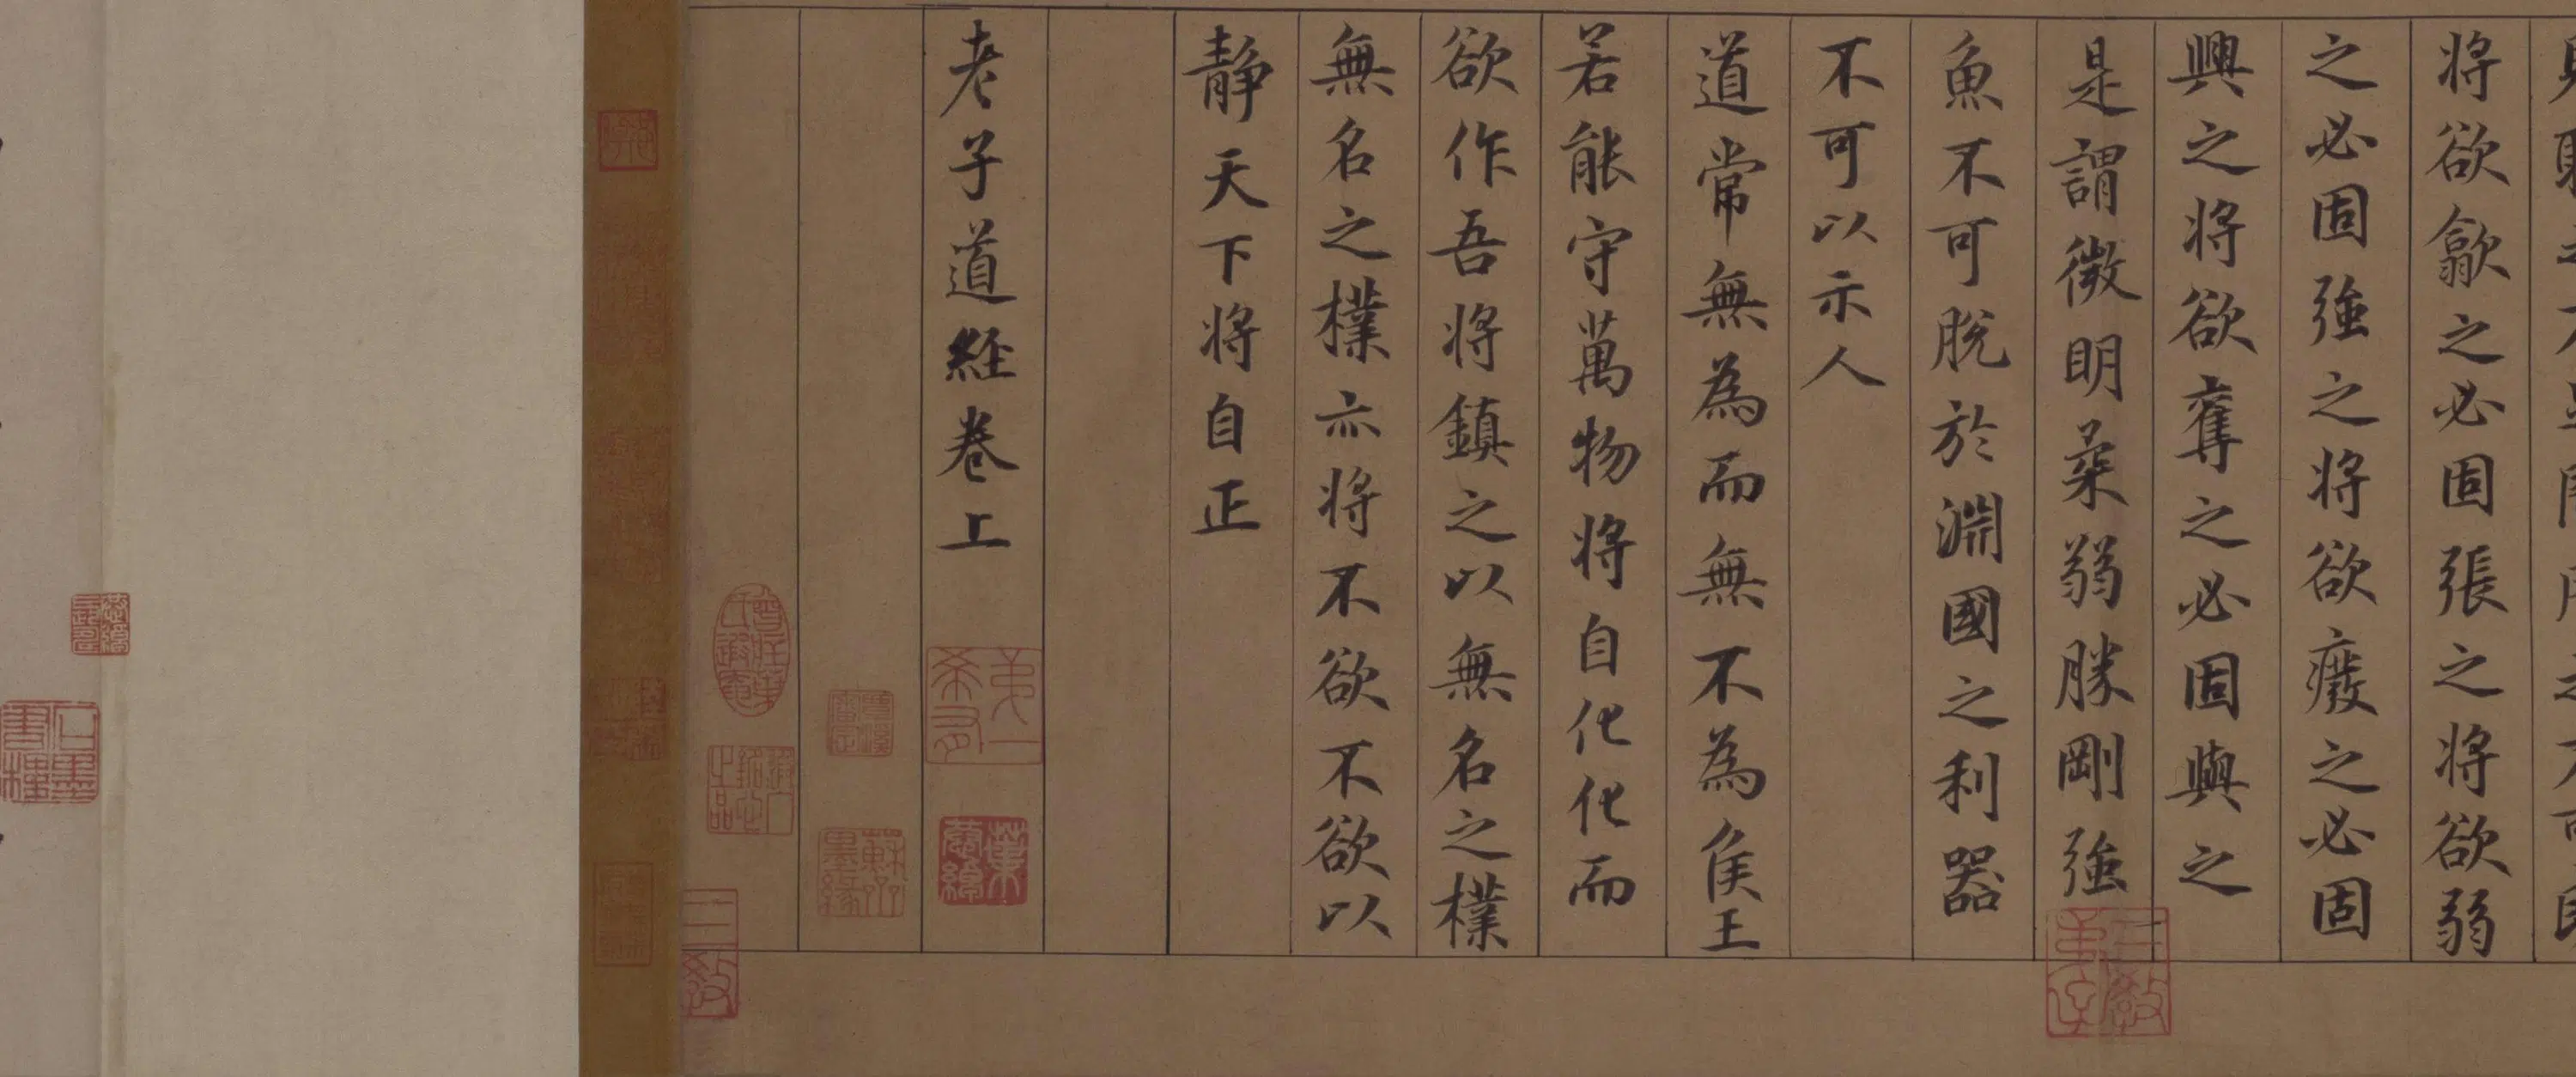 將欲歙之必固張之將欲弱
之必固強之將欲癈之必固
興之將欲奪之必固與之
是謂微明柔弱勝剛強
魚不可脫於淵國之利器
不可以示人
道常無為而無不為侯王
若能守萬物將自化化而
欲作吾將鎮之以無名之樸
無名之樸亦將不欲不欲以
靜天下將自正
老子道經卷上